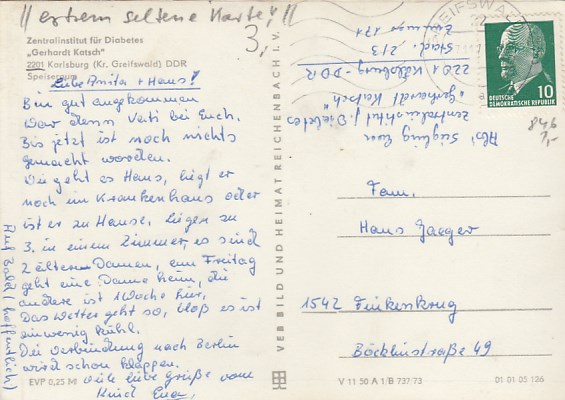 //extrem seltene Karte!//
3,-
Zentralinstitut für Diabetes
„Gerhardt Katsch"
2201 Karlsburg (Kr. Greifswald) DDR
Speiseraum
Liebe Anita + Hans!
Bin gut angekommen
war denn Vati bei Euch.
Bis jetzt ist noch nichts
gemacht worden.
Wie geht es Hans, liegt er
noch im Krankenhaus oder
ist er zu Hause. Liegen zu
3. in einem Zimmer, es sind
2 ältere Damen, am Freitag
geht eine Dame heim, die
andere ist 1 Woche hier.
Das Wetter geht so, bloß es ist
ein wenig kühl.
Die Verbindung nach Berlin
wird schon klappen.
Viele liebe Grüße vom
Kind Eva.
Auf bald (hoffentlich)
EVP 0,25 M
VEB BILD UND HEIMAT REICHENBACH I. V.
Abs:
Zentralinstitut f. Diabetes
„Gerhardt Katsch"
2201 Karlsburg-DDR
Stat. 2/3
Zimmer 121
GREIFSWALD
DEUTSCHE
DEMOKRATISCHE REPUBLIK
10
846
1,-
Fam.
Hans Jaeger
1542 Finkenkrug
Böcklinstraße 49
V 11 50 A 1/B 737/73
01 01 05 126